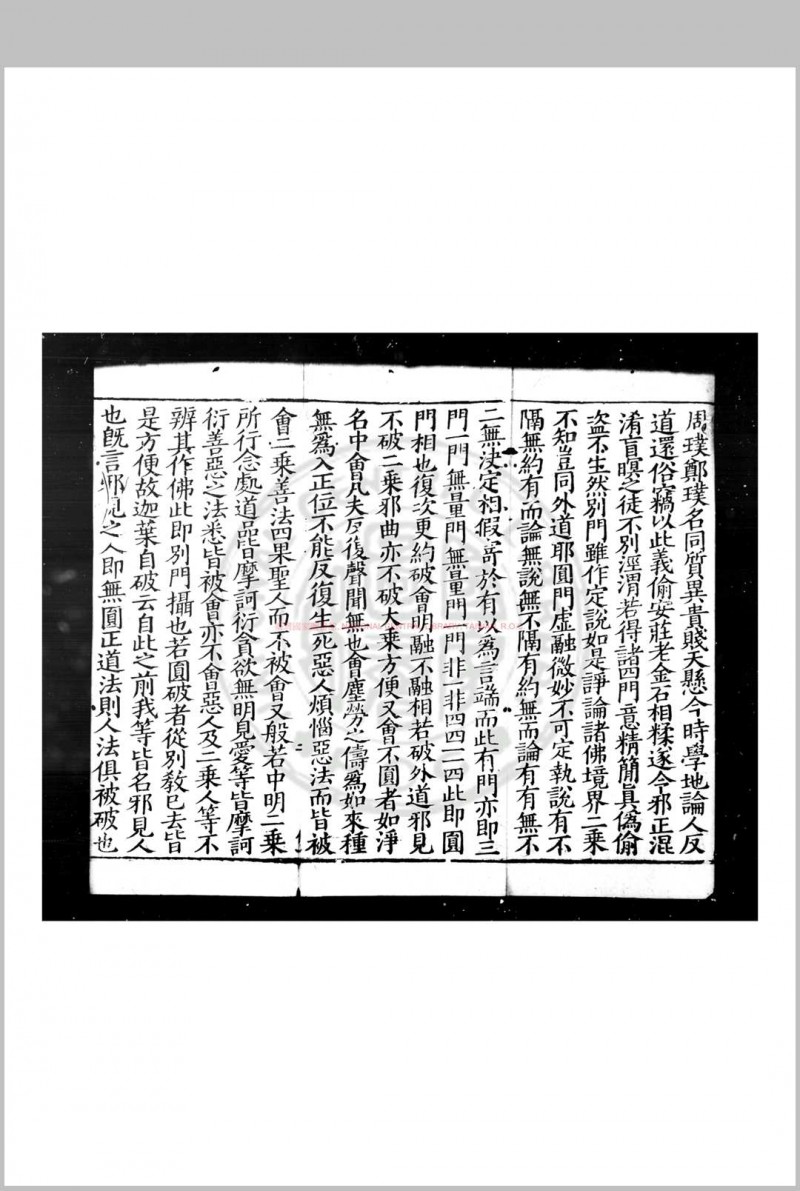 周璞鄭璞名同質異貴賤天懸今時學地論人反
道還俗竊以此義偷安莊老金石相糅遂令邪正混
淆盲瞑之徒不別涇渭若得諸四門意精簡真偽偷
盜不生然別門雖作定說如是諍論諸佛境界二乗
不知豈同外道耶圓門虛融微妙不可定執說有不
隔無約有而論無說無不隔有約無而論有有無不
二無決定相假寄於有以為言端而此有門亦即三
門一門無量門無量門一門非一非四四一一四此即圓
門相也復次更約破會明融不融相若破外道邪見
不破二乗邪曲亦不破大乗方便又會不圓者如淨
名中會凡夫反復聲聞無也會塵勞之儔為如來種
無為入正位不能反復生死惡人煩惱惡法而皆被
會二乗善法四果聖人而不被會又般若中明二乗
所行念處道品皆摩訶衍貪欲無明見愛等皆摩訶
衍善惡之法悉皆被會亦不會惡人及二乗人等不
辨其作佛此即別門攝也若圓破者從別教已去皆
是方便故迦葉自破云自此之前我等皆名邪見人
也既言邪見之人即無圓正道法則人法俱被破也